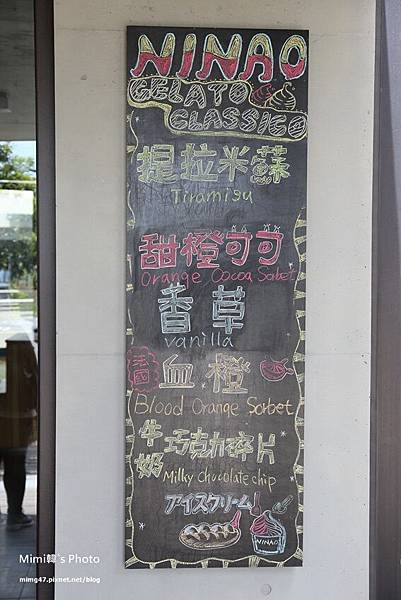 NINAO
GELATO
CLASSICO
提拉米蘇
Tiramisu
甜橙可可
Orange Cocoa Sorbet
香草
vanilla
法國 血橙
Blood Orange Sorbet
牛奶 巧克力碎片
Milky Chocolate chip
アイスクリーム
NINAO
Mimi韓's Photo
mimg47.pixnet.net/blog